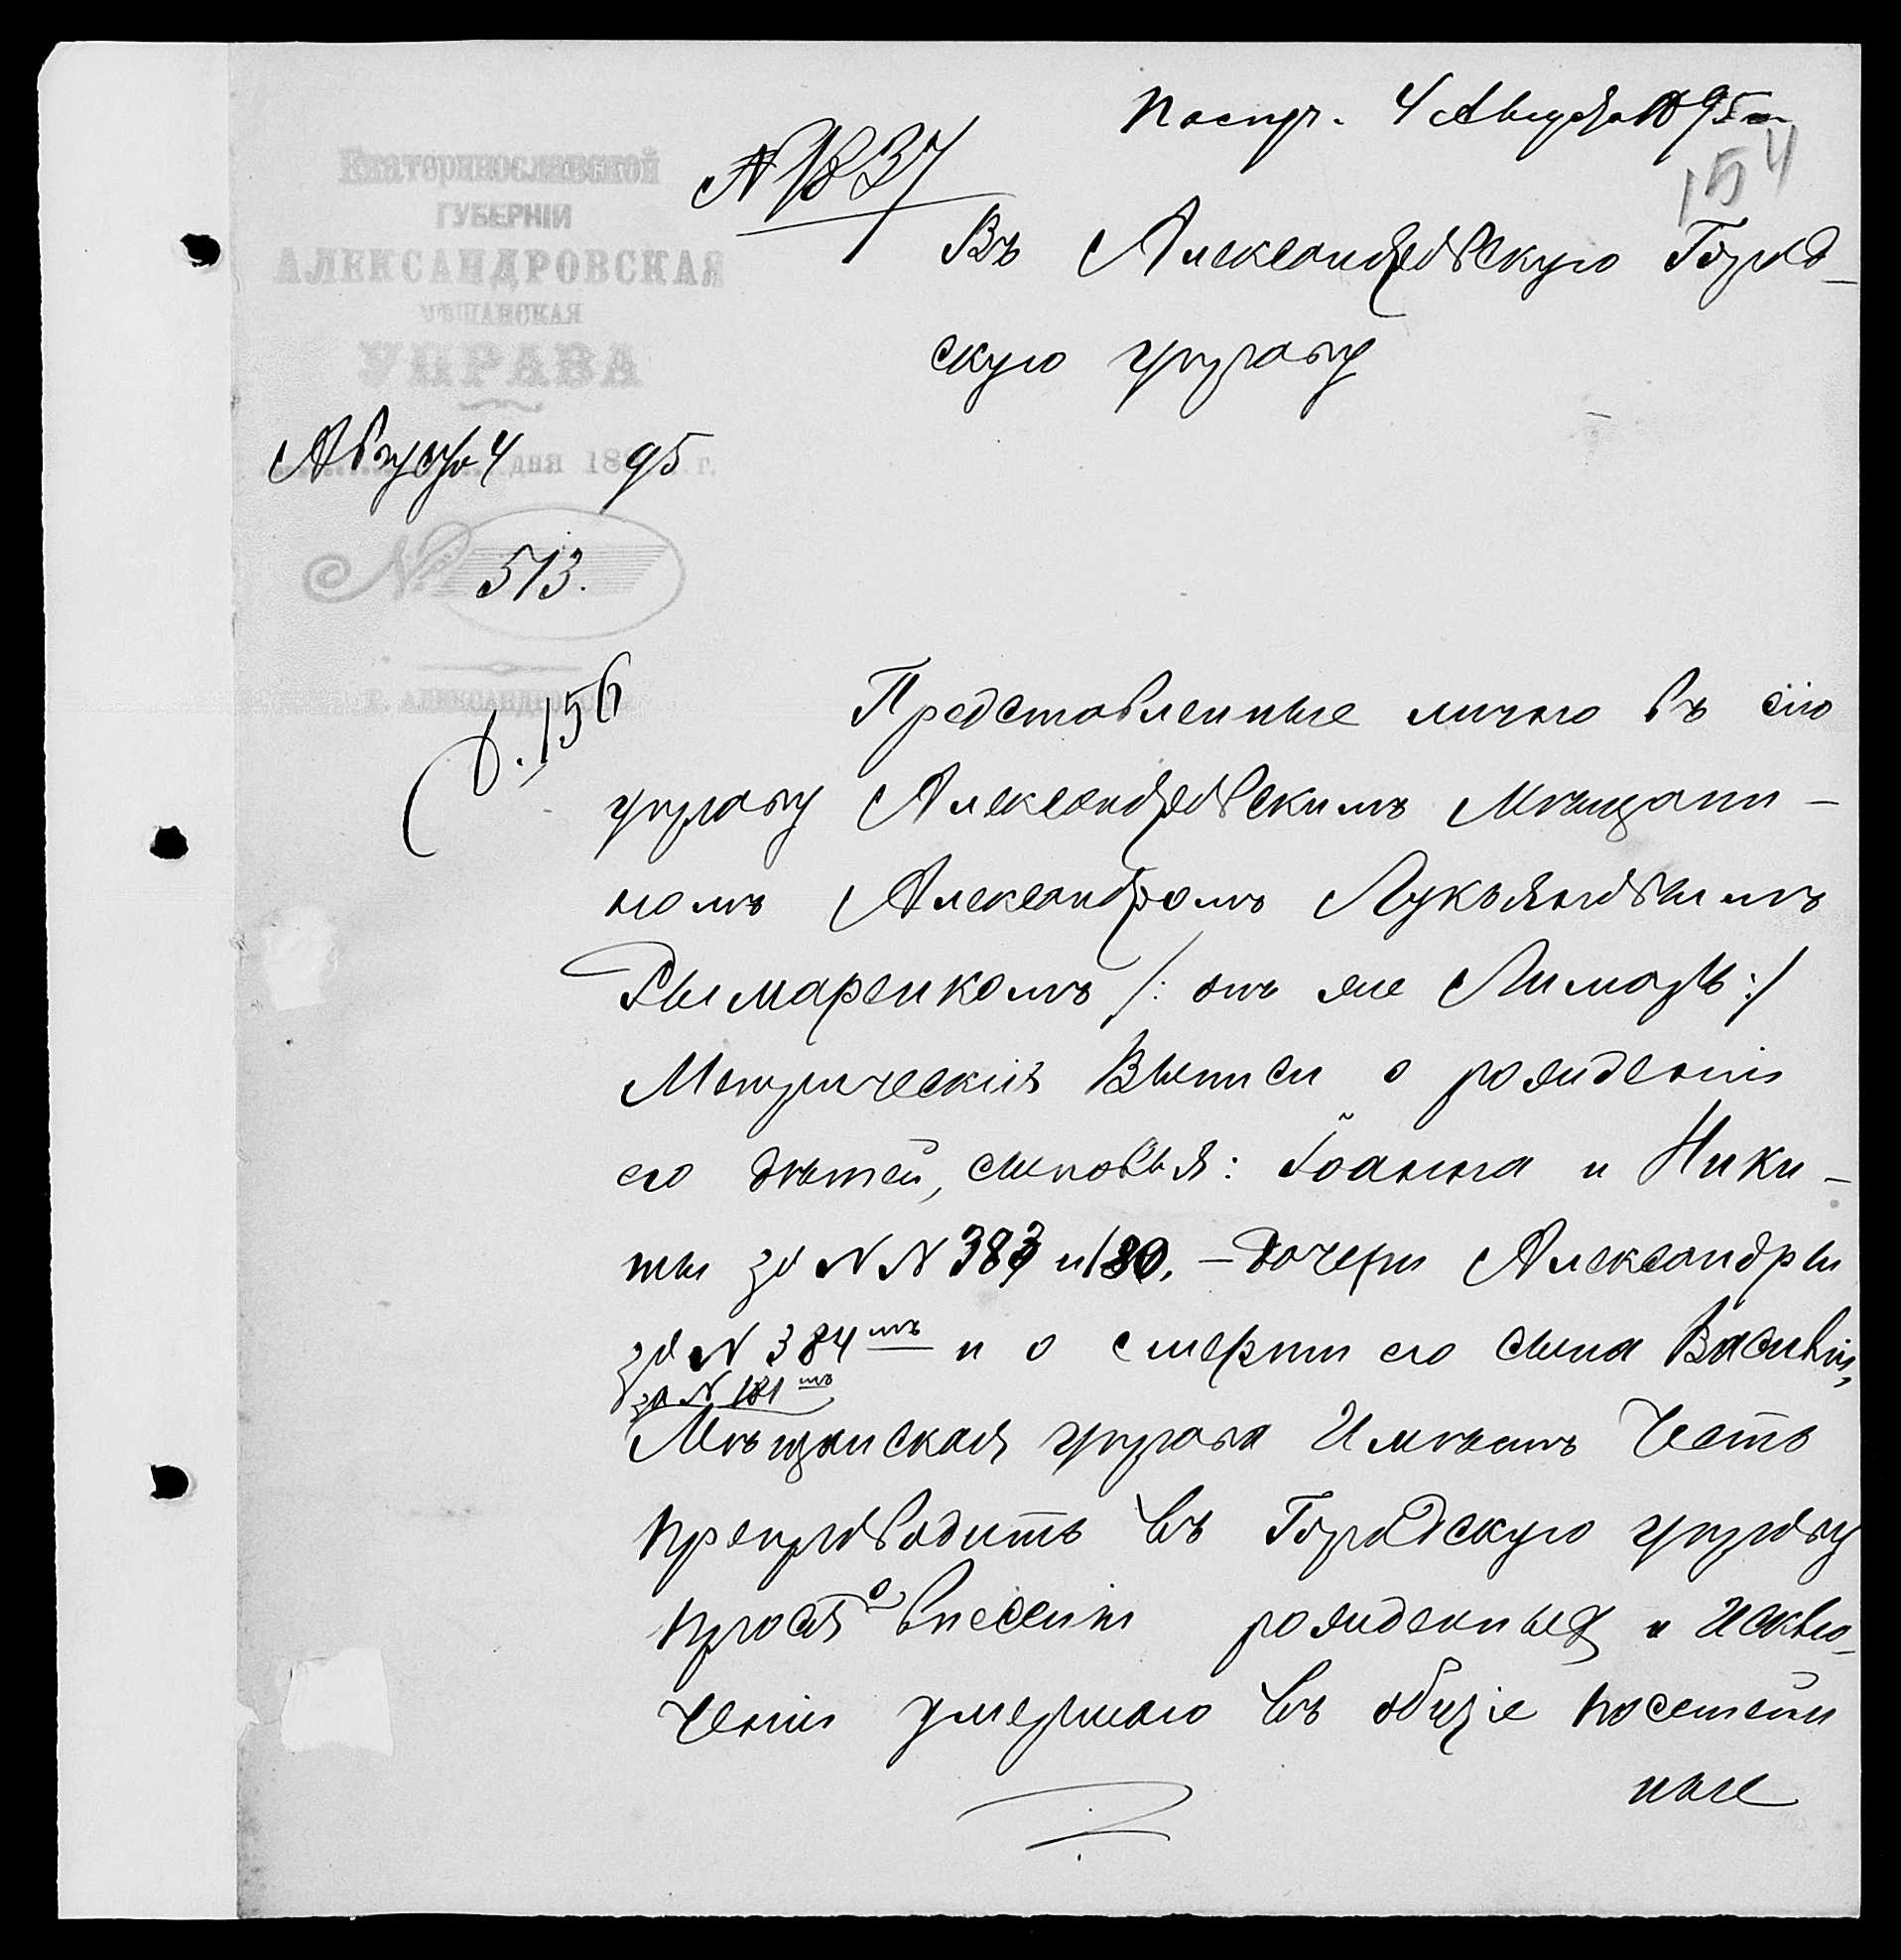 Поступ. 4 Августа 1895 г.
154
№ 1837
Екатеринославской
ГУБЕРНІИ
АЛЕКСАНДРОВСКАЯ
МѢЩАНСКАЯ
УПРАВА
Августа 4 дня 1895 г.
№ 513.
Г. АЛЕКСАНДРОВСКЪ
Въ Александровскую Город-
скую управу
д. 156
Представленные лично въ сію
управу Александровскимъ Мѣщани-
номъ Александромъ Лукьяновымъ
Рымаренкомъ /: онъ же Лимарь :/
Метрическія Выписи о рожденіи
его дѣтей, сыновья: Іоанна и Ники-
ты за №№ 383 и 180, - дочери Александры
за № 384мъ и о смерти его сына Василія,
за № 181мъ
Мѣщанская управа Имѣетъ Честь
препроводить въ Городскую управу
прося о внесеніи рожденныхъ и Исклю-
ченіи умершаго въ общіе посемей
ные